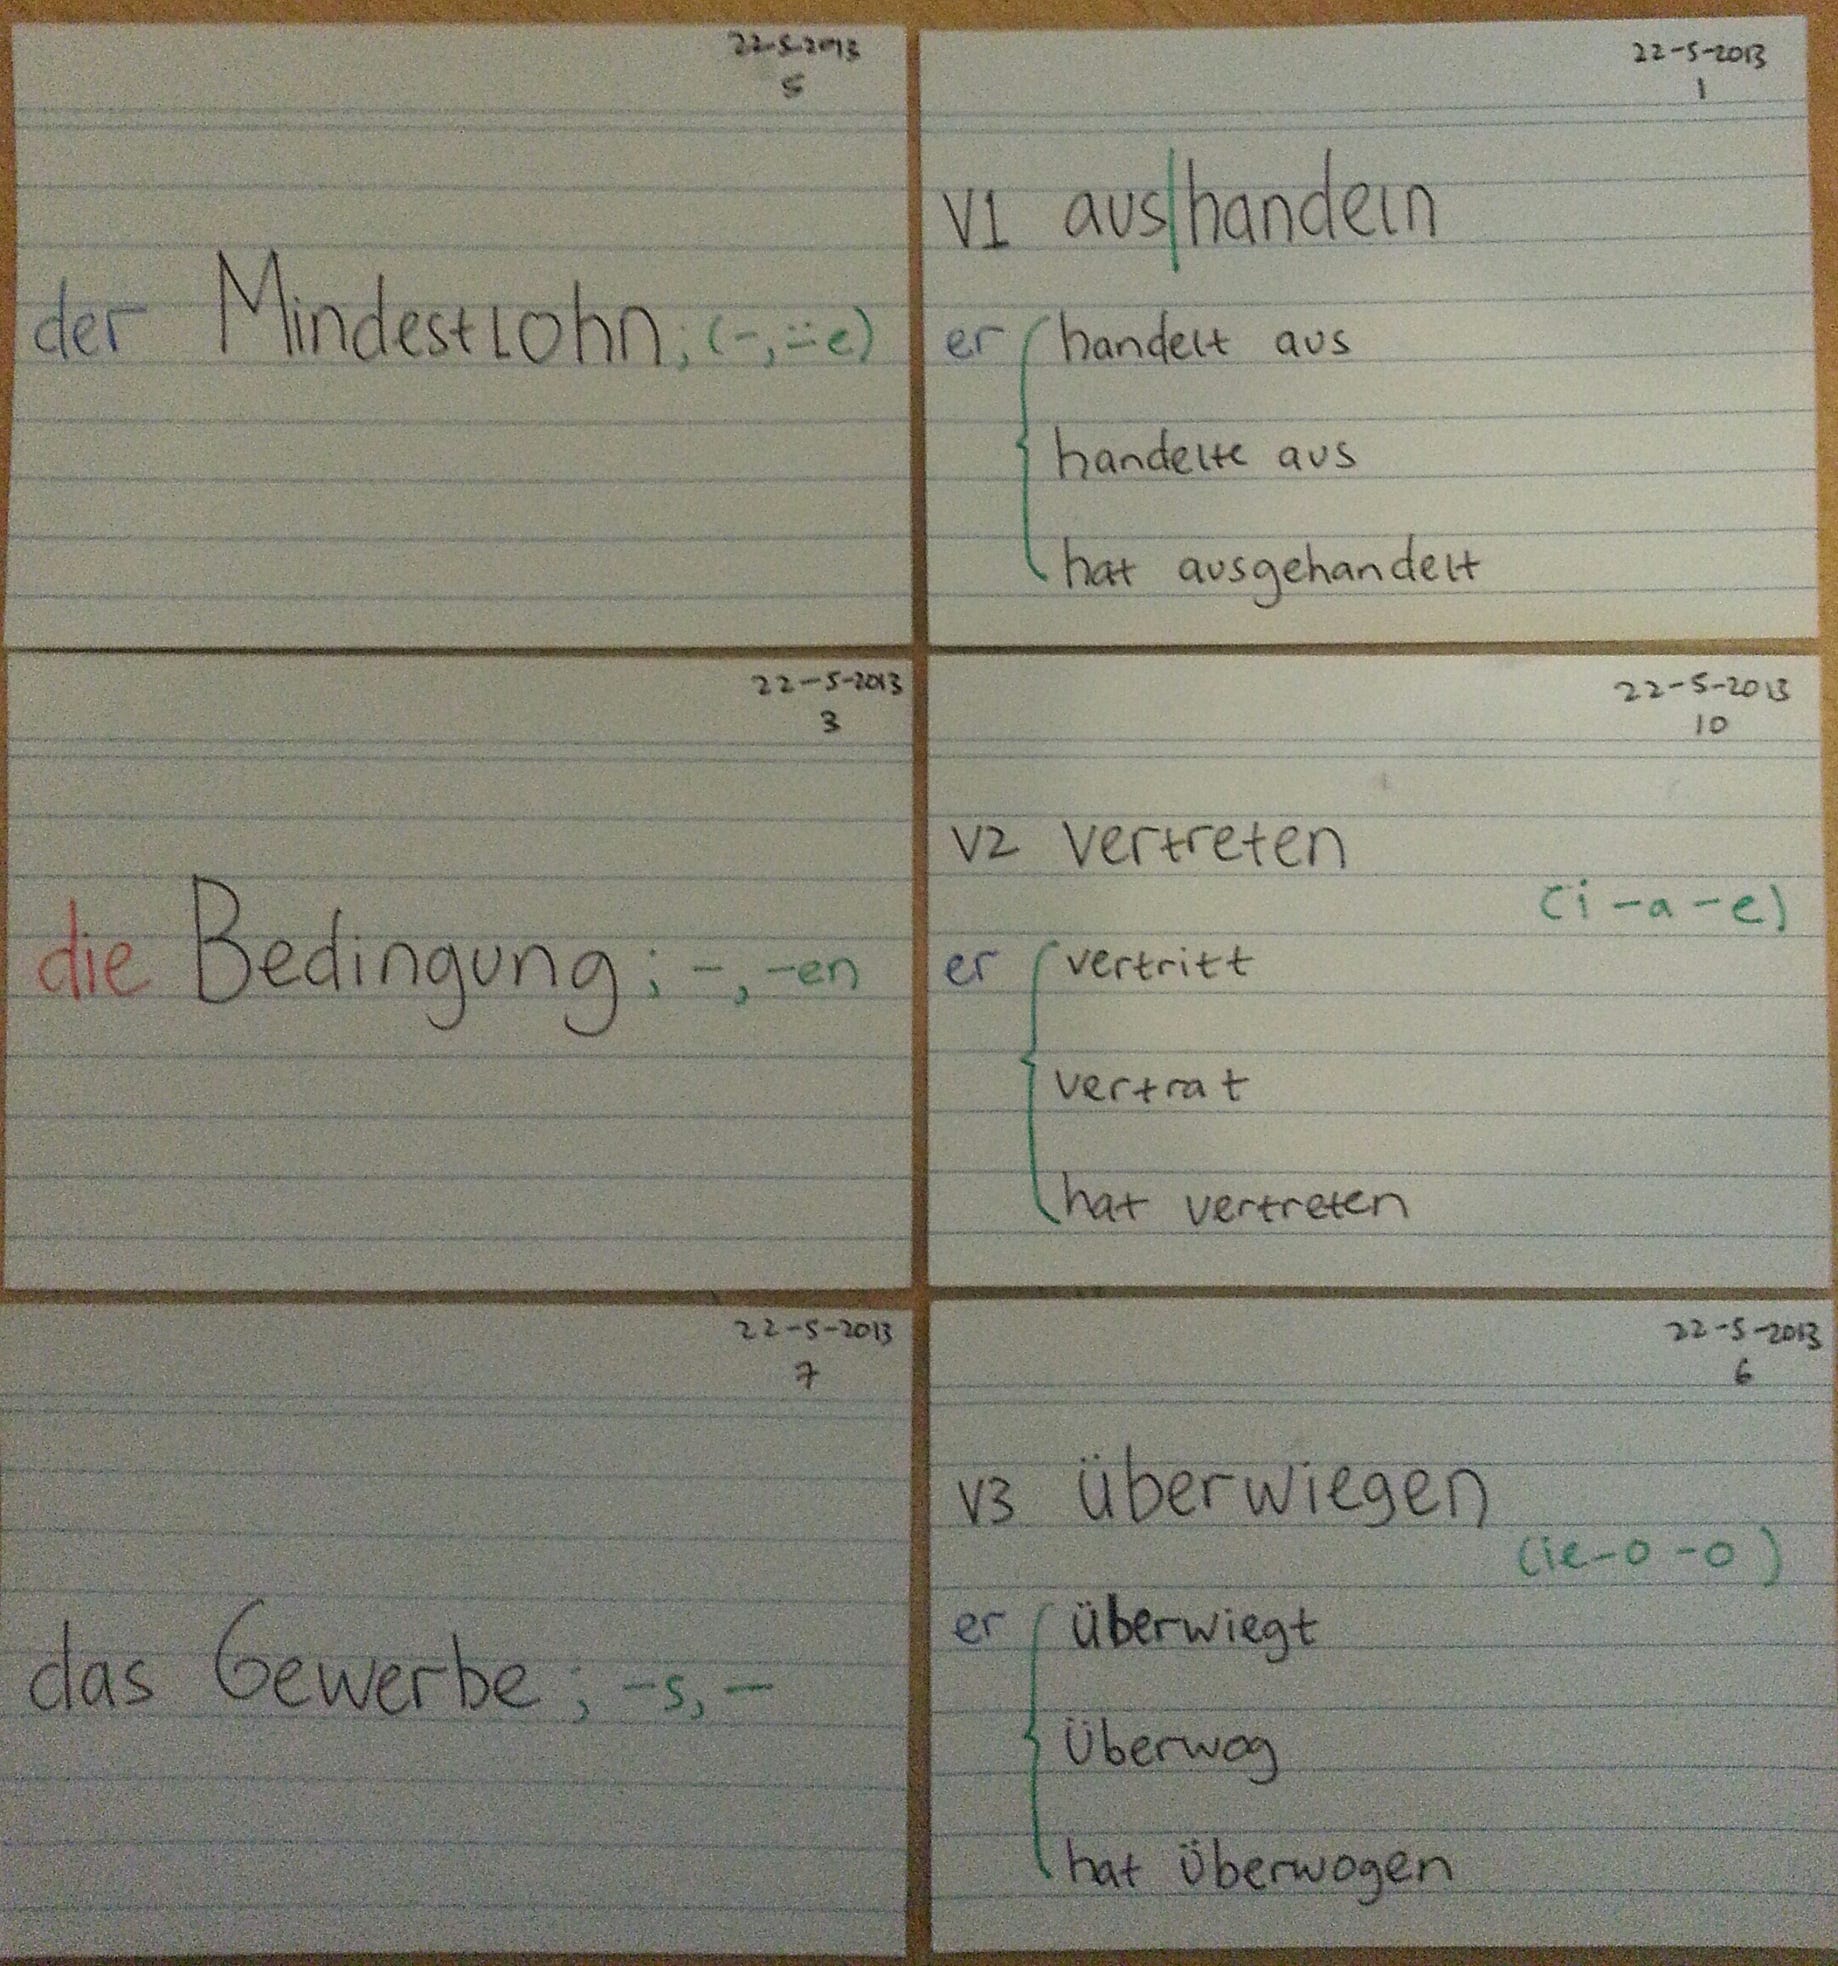 22-5-2013
5
der Mindestlohn; (-, ¨e)
22-5-2013
1
V1 aus|handeln
er handelt aus
handelte aus
hat ausgehandelt
22-5-2013
3
die Bedingung; -, -en
22-5-2013
10
V2 vertreten
(i-a-e)
er vertritt
vertrat
hat vertreten
22-5-2013
7
das Gewerbe; -s, -
22-5-2013
6
V3 überwiegen
(ie-o-o)
er überwiegt
überwog
hat überwogen